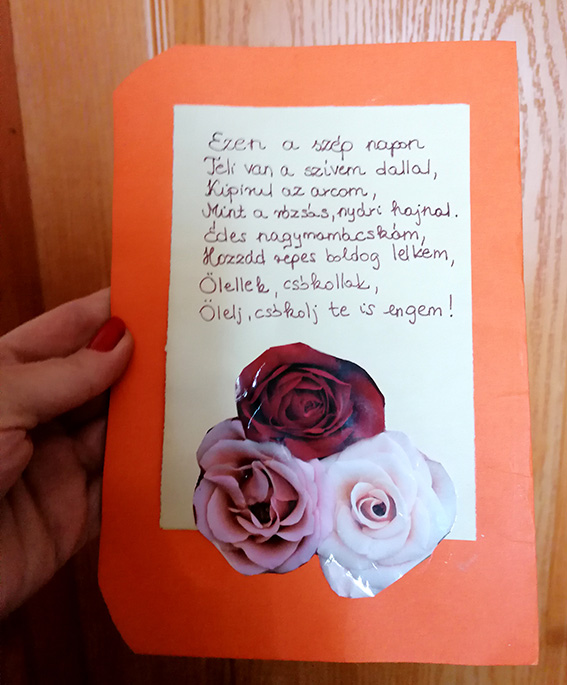 Ezen a szép napon
Teli van a szívem dallal,
Kipirul az arcom,
Mint a rózsás, nyári hajnal.
Édes nagymamácskám,
Hozzád repes boldog lelkem,
Ölellek, csókollak,
Ölelj, csókolj te is engem!